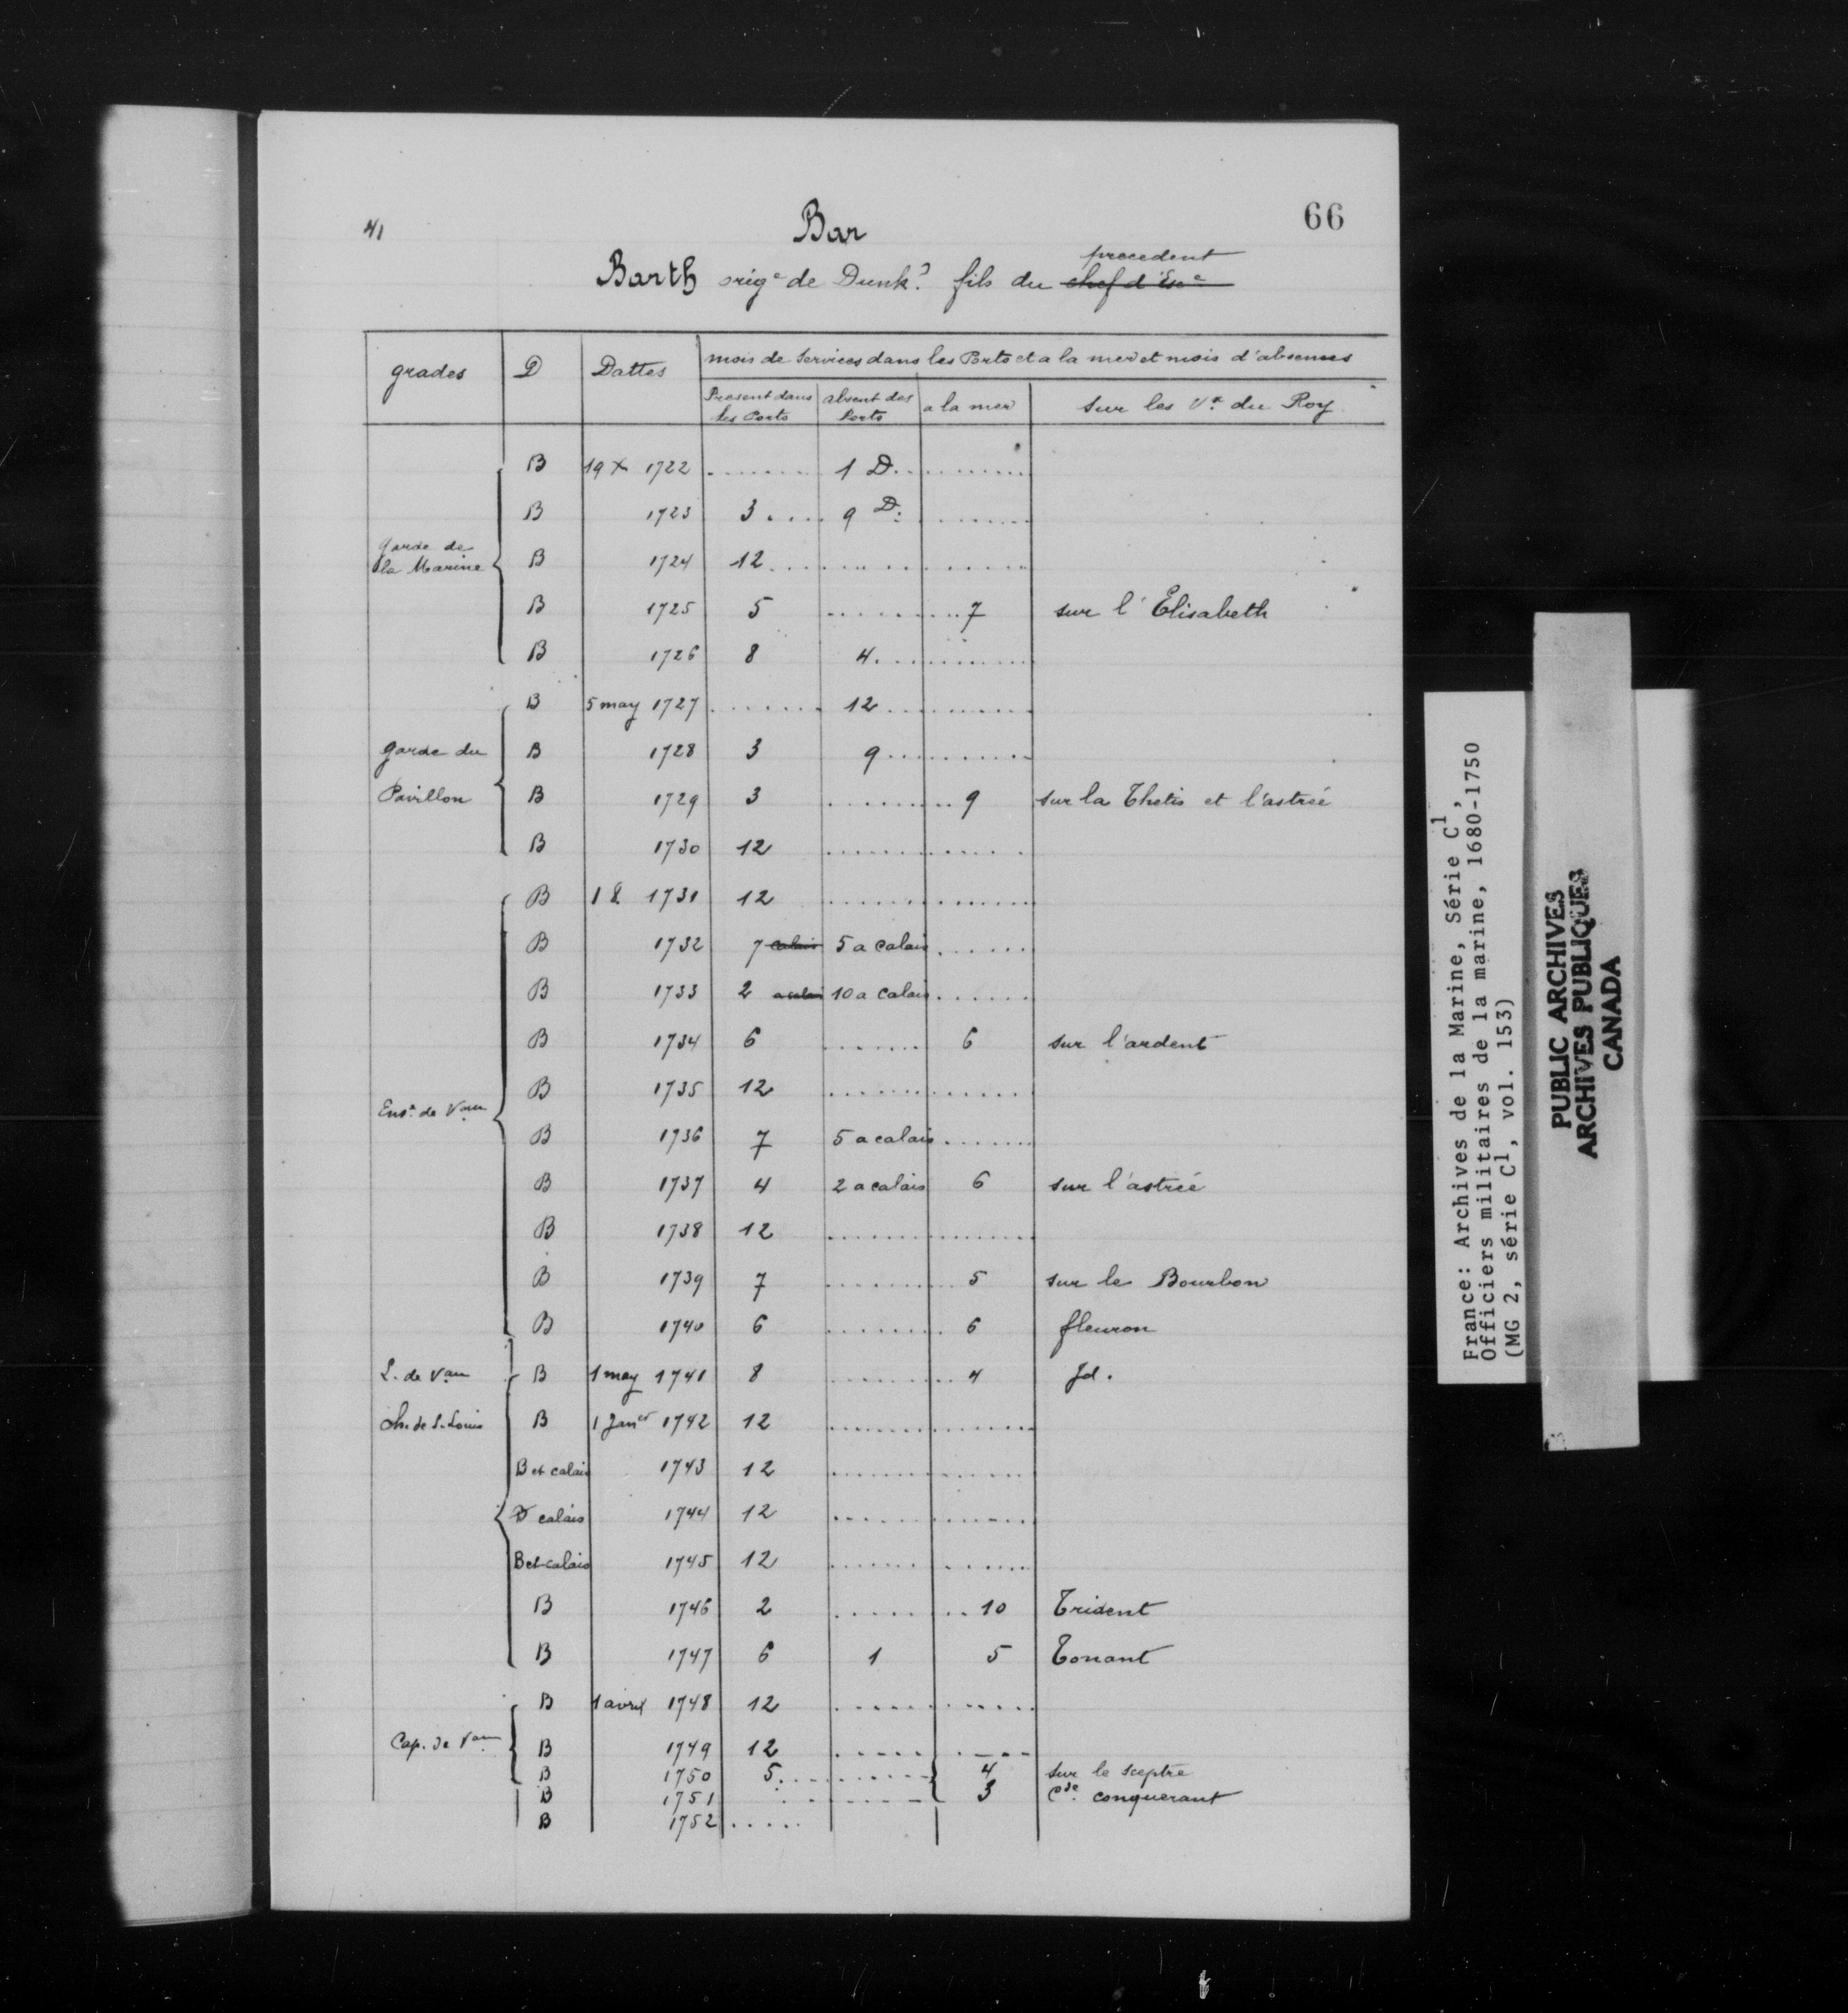 41
Bar
66
precedent
Barth orig<sup>e</sup> de Dunk? fils du chef d'Esc<sup>e</sup>
grades D Dattes mois de Services dans les Ports et a la mer et mois d'absences
Present dans les Ports absent des Ports a la mer sur les V<sup>x</sup> du Roy
B 19 X 1722 ........ 1 D ............
B 1723 3 .... 9 D. ........
garde de la Marine B 1724 12 ............
B 1725 5 ......... 7 sur l'Elisabeth
B 1726 8 4 ............
B 5 may 1727 ........ 12 ..........
garde du B 1728 3 9 ..........
Pavillon B 1729 3 ......... 9 sur la Thetis et l'astrée
B 1730 12 ............
B 1 1731 12 ............
B 1732 7 calais 5 a calais ......
B 1733 2 a calais 10 a calais ......
B 1734 6 ....... 6 sur l'ardent
B 1735 12 ............
Ens. de Vau B 1736 7 5 a calais .......
B 1737 4 2 a calais 6 sur l'astrée
B 1738 12 ............
B 1739 7 ........ 5 sur le Bourbon
B 1740 6 ........ 6 fleuron
L. de Vau B 1 may 1741 8 ........ 4 Jd.
Ch. de S. Louis B 1 Jan<sup>er</sup> 1742 12 ............
B et calais 1743 12 ............
calais 1744 12 ............
B et calais 1745 12 ............
B 1746 2 ........ 10 Trident
B 1747 6 1 5 Tonant
B 1 avril 1748 12 ............
Cap. de Vau B 1749 12 ..... ....
B 1750 5 ......... 4 sur le sceptre
B 1751 ........ 3 C<sup>de</sup>. conquerant
B 1752 .....
France: Archives de la Marine, Série C1,
Officiers militaires de la marine, 1680-1750
(MG 2, série C1, vol. 153)
PUBLIC ARCHIVES
ARCHIVES PUBLIQUES
CANADA